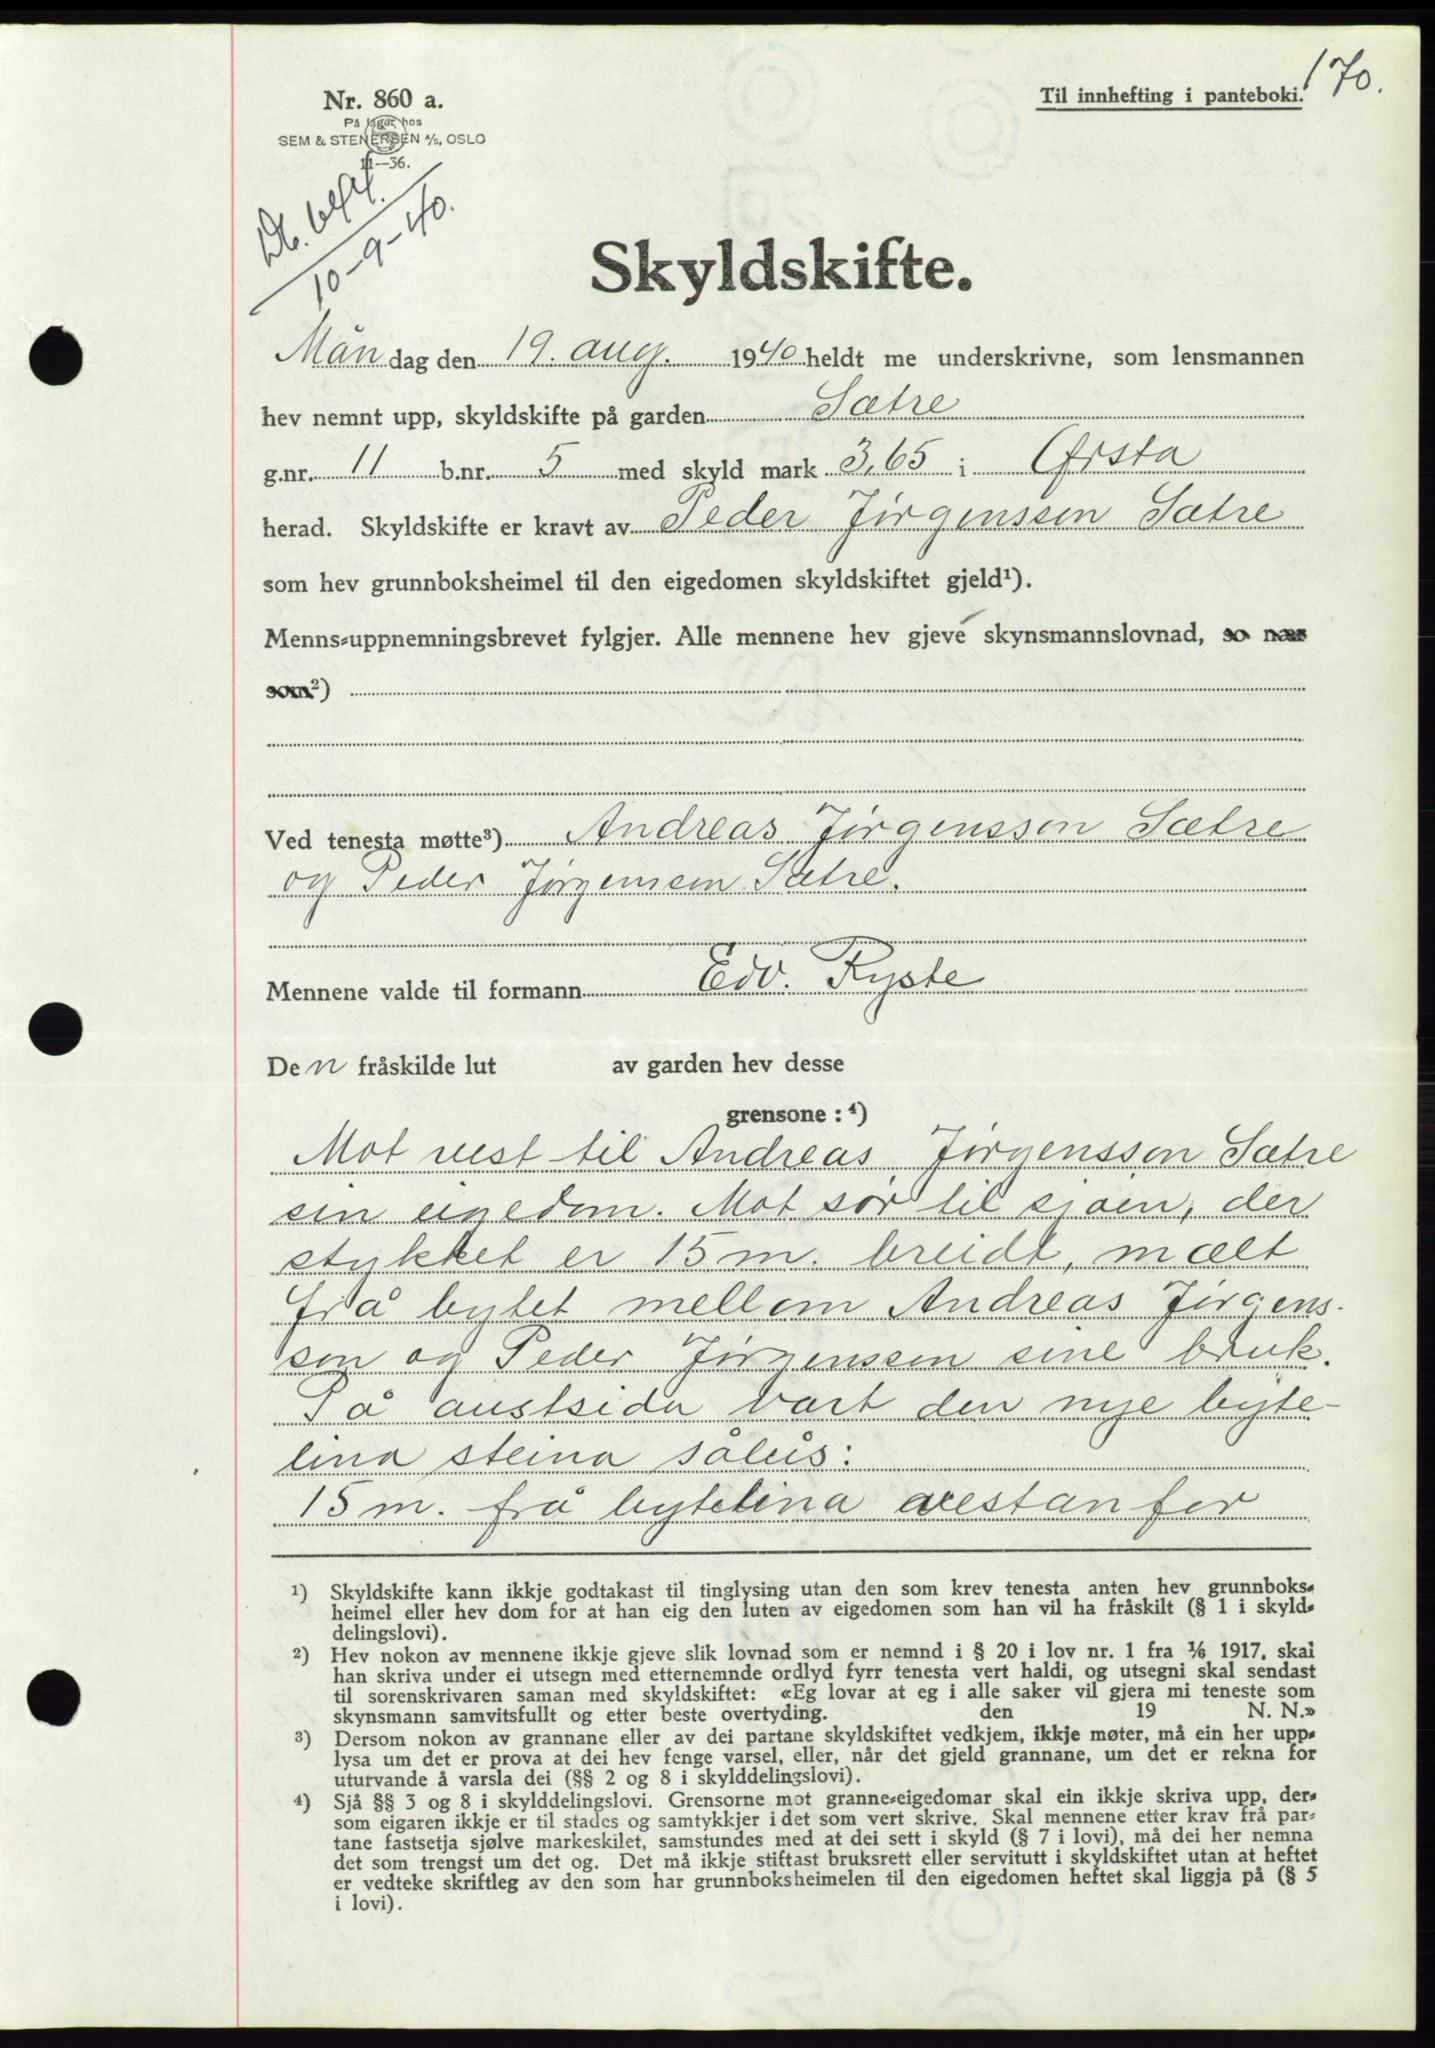 170.
Nr. 860 a.
På lager hos
SEM & STENERSEN A/S, OSLO
11—36.
Til innhefting i panteboki.
Db.
10-9-40.
Skyldskifte.
Måndag den 19. aug. 1940 heldt me underskrivne, som lensmannen
hev nemnt upp, skyldskifte på garden Sætre
g.nr. 11 b.nr. 5 med skyld mark 3,65 i Ørsta
herad. Skyldskifte er kravt av Peder Jørgenssen Sætre
som hev grunnboksheimel til den eigedomen skyldskiftet gjeld¹).
Menns-uppnemningsbrevet fylgjer. Alle mennene hev gjeve skynsmannslovnad, so nær
som²)
Ved tenesta møtte³) Andreas Jørgensson Sætre
og Peder Jørgenssen Sætre.
Mennene valde til formann Edv. Ryste
Den fråskilde lut av garden hev desse
grensone: ⁴)
Mot vest til Andreas Jørgensson Sætre
sin eigedom. Mot sør til sjøen, der
stykket er 15 m. breidt, mælt
frå bytet mellom Andreas Jørgens-
son og Peder Jørgenssen sine bruk.
På austsida vart den nye byte-
lina steina såleis:
15 m. frå bytelina vestanfor
¹) Skyldskifte kann ikkje godtakast til tinglysing utan den som krev tenesta anten hev grunnboks-
heimel eller hev dom for at han eig den luten av eigedomen som han vil ha fråskilt (§ 1 i skyld-
delingslovi).
²) Hev nokon av mennene ikkje gjeve slik lovnad som er nemnd i § 20 i lov nr. 1 fra 1/6 1917, skal
han skriva under ei utsegn med etternemnde ordlyd fyrr tenesta vert haldi, og utsegni skal sendast
til sorenskrivaren saman med skyldskiftet: «Eg lovar at eg i alle saker vil gjera mi teneste som
skynsmann samvitsfullt og etter beste overtyding. den 19 N. N.»
³) Dersom nokon av grannane eller av dei partane skyldskiftet vedkjem, ikkje møter, må ein her upp-
lysa um det er prova at dei hev fenge varsel, eller, når det gjeld grannane, um det er rekna for
uturvande å varsla dei (§§ 2 og 8 i skylddelingslovi).
⁴) Sjå §§ 3 og 8 i skylddelingslovi. Grensorne mot granne-eigedomar skal ein ikkje skriva upp, der-
som eigaren ikkje er til stades og samtykkjer i det som vert skrive. Skal mennene etter krav frå par-
tane fastsetja sjølve markeskilet, samstundes med at dei sett i skyld (§ 7 i lovi), må dei her nemna
det som trengst um det og. Det må ikkje stiftast bruksrett eller servitutt i skyldskiftet utan at heftet
er vedteke skriftleg av den som har grunnboksheimelen til den eigedomen heftet skal liggja på (§ 5
i lovi).